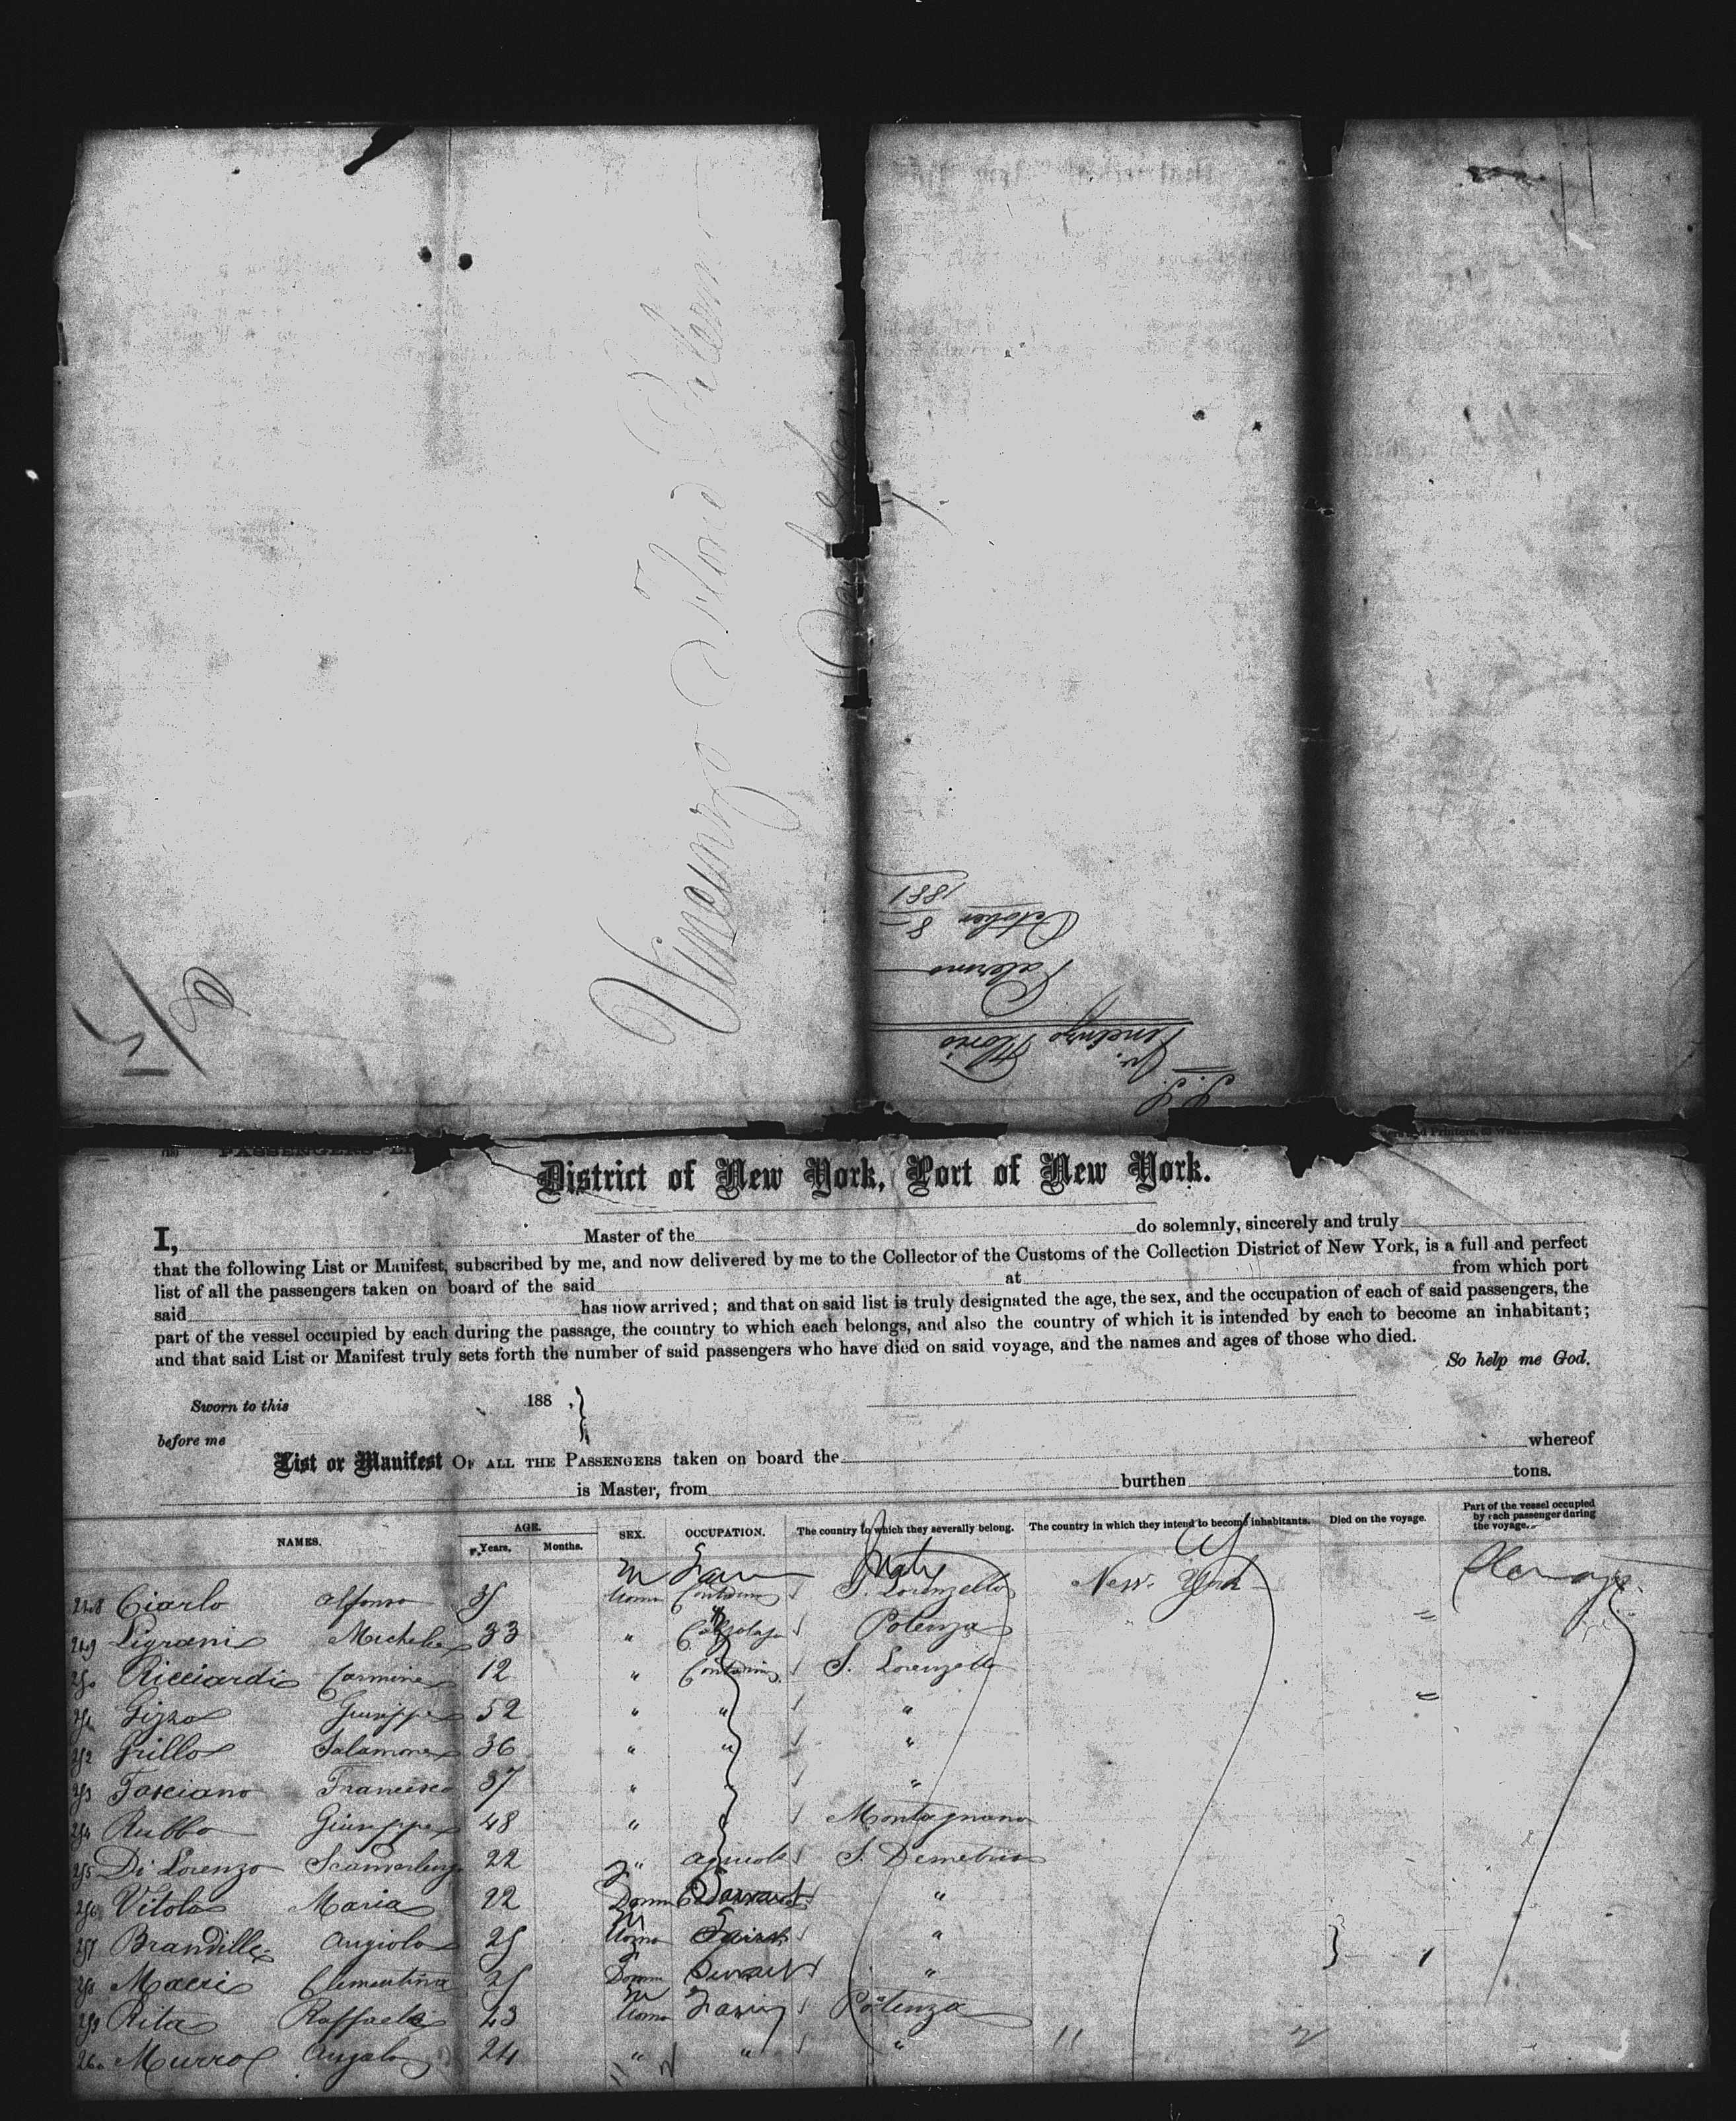 Vincenzo Florio Palerm
S.S.
V. Florio
Vincenzo
Palermo
October 8
1881
District of New York, Port of New York.
I, Master of the do solemnly, sincerely and truly
that the following List or Manifest, subscribed by me, and now delivered by me to the Collector of the Customs of the Collection District of New York, is a full and perfect
list of all the passengers taken on board of the said at from which port
said has now arrived; and that on said list is truly designated the age, the sex, and the occupation of each of said passengers, the
part of the vessel occupied by each during the passage, the country to which each belongs, and also the country of which it is intended by each to become an inhabitant;
and that said List or Manifest truly sets forth the number of said passengers who have died on said voyage, and the names and ages of those who died.
So help me God.
Sworn to this 188 .
before me
List or Manifest OF ALL THE PASSENGERS taken on board the whereof
is Master, from burthen tons.
NAMES. AGE. Years. Months. SEX. OCCUPATION. The country to which they severally belong. The country in which they intend to become inhabitants. Died on the voyage. Part of the vessel occupied by each passenger during the voyage.
m Farm Italy
248 Ciarlo Alfonso Uomo Contadino S. Lorenzello New York
249 Ligrani Michele 33 " Potenza
250 Ricciardi Carmine 12 " Contadino S. Lorenzello
251 Gizzo Giuseppe 52 " " "
252 Grillo Salamone 36 " " "
253 Fasciano Francesco 37 " " "
254 Rubbo Giuseppe 48 " " Montagnano
255 Di Lorenzo 22 " S. Demetrio
256 Vitola Maria 22 Donna Servant "
257 Brandille Angiolo 25 m Uomo "
258 Macri Clementina 25 Donna Servant "
259 Rita Raffaele 43 m Uomo Potenza
260 Murro Angelo 24 " " " 11